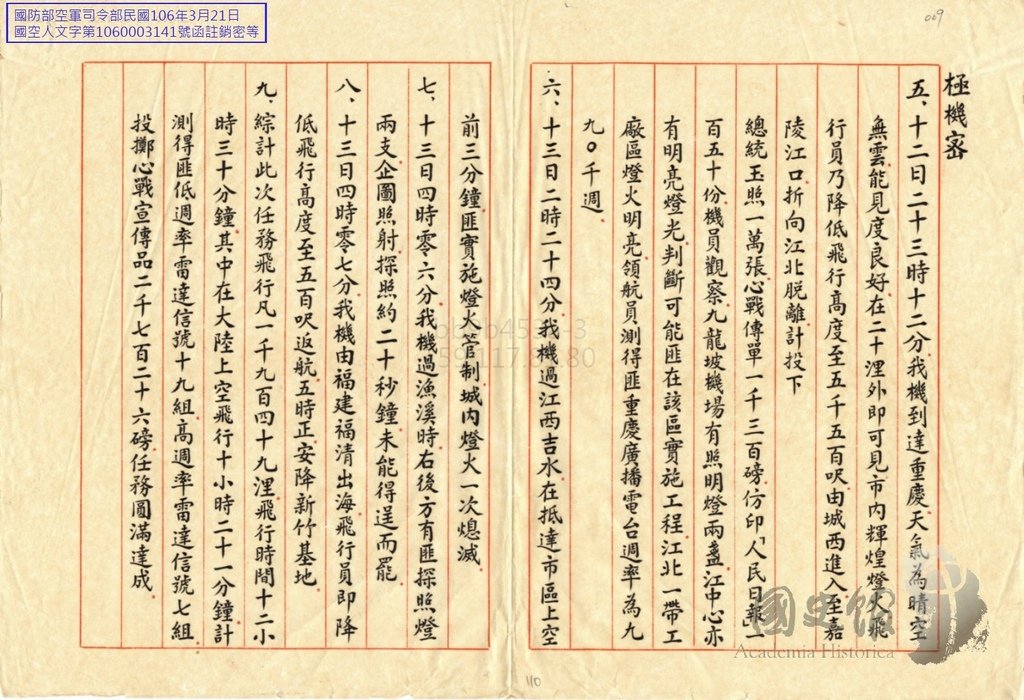 國防部空軍司令部民國106年3月21日
國空人文字第1060003141號函註銷密等
009
極機密
五、十二日二十三時十二分我機到達重慶天氣為晴空
無雲能見度良好在二十浬外即可見市內輝煌燈火飛
行員乃降低飛行高度至五千五百呎由城西進入至嘉
陵江口折向江北脫離計投下
總統玉照一萬張心戰傳單一千三百磅仿印「人民日報」一
百五十份機員觀察九龍坡機場有照明燈兩盞江中心亦
有明亮燈光判斷可能匪在該區實施工程江北一帶工
廠區燈火明亮領航員測得匪重慶廣播電台週率為九
九〇千週
六、十三日二時二十四分我機過江西吉水在抵達市區上空
前三分鐘匪實施燈火管制城內燈火一次熄滅
七、十三日四時零六分我機過漁溪時右後方有匪探照燈
兩支企圖照射探照約二十秒鐘未能得逞而罷
八、十三日四時零七分我機由福建福清出海飛行員即降
低飛行高度至五百呎返航五時正安降新竹基地
九、綜計此次任務飛行凡一千九百四十九浬飛行時間十二小
時三十分鐘其中在大陸上空飛行十小時二十一分鐘計
測得匪低週率雷達信號十九組高週率雷達信號七組
投擲心戰宣傳品二千七百二十六磅任務圓滿達成
國史館
Academia Historica
110